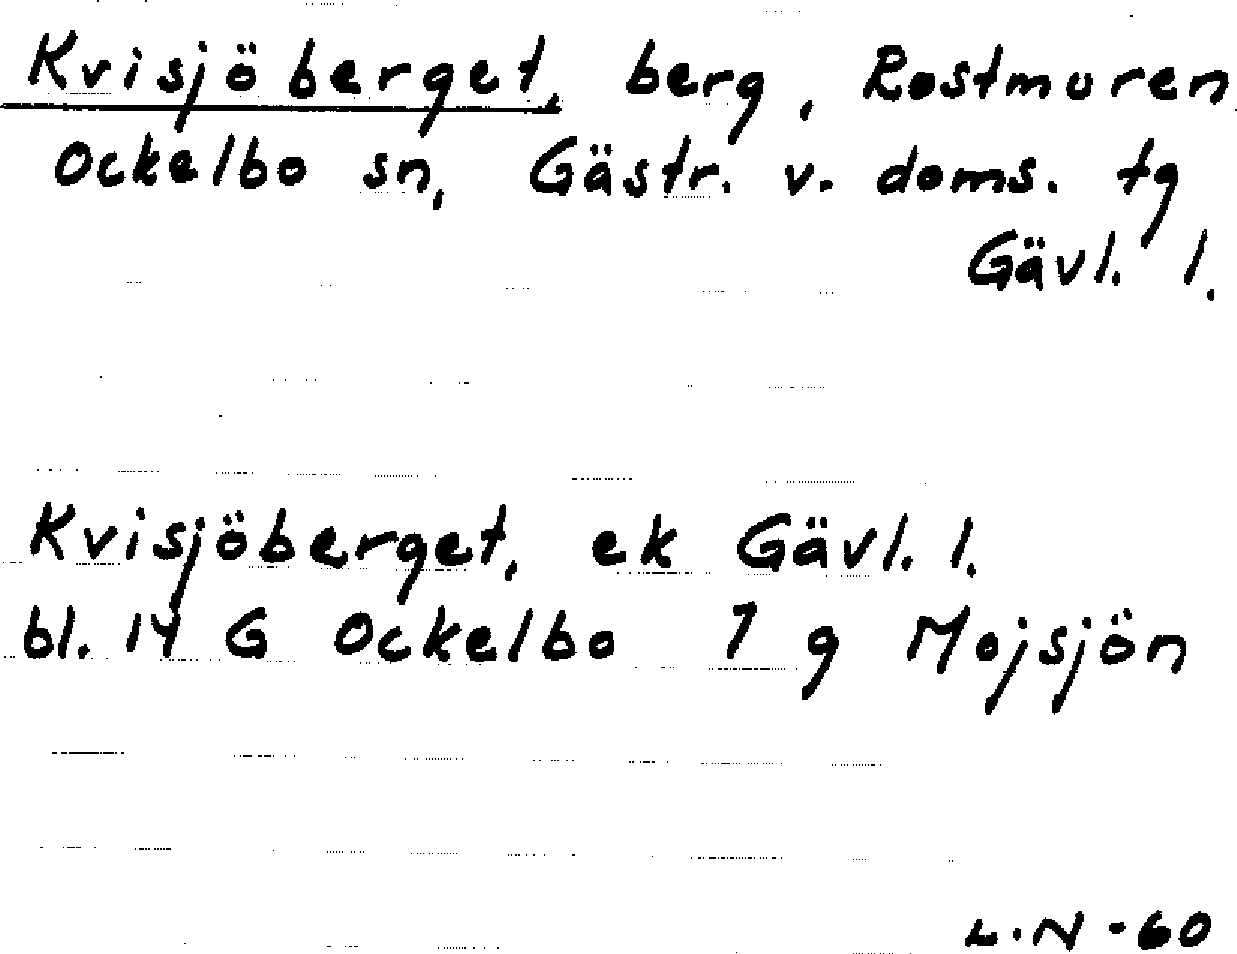 Kvisjöberget, berg, Rostmuren
Ockelbo sn, Gästr. v. doms. tg
Gävl. l.
Kvisjöberget, ek Gävl. l.
bl. 14 G Ockelbo 7 g Mojsjön
L.N -60